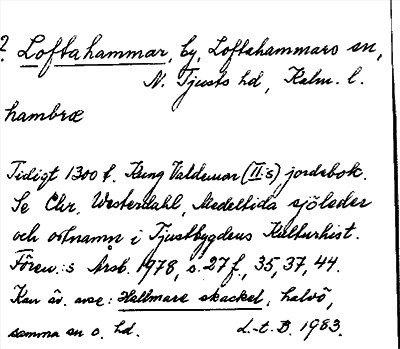 ? Loftahammar, by, Loftahammars sn,
N. Tjusts hd, Kalm. l.
hambræ
Tidigt 1300 t. Kung Valdemar (II:s) jordebok.
Se Chr. Westerdahl, Medeltida sjöleder
och ortnamn i Tjustbygdens Kulturhist.
Fören:s Årsb. 1978, s. 27 f., 35, 37, 44.
Kan äv. avse: Hallmare skackel, halvö,
samma sn o. hd. L.-t. B. 1983.